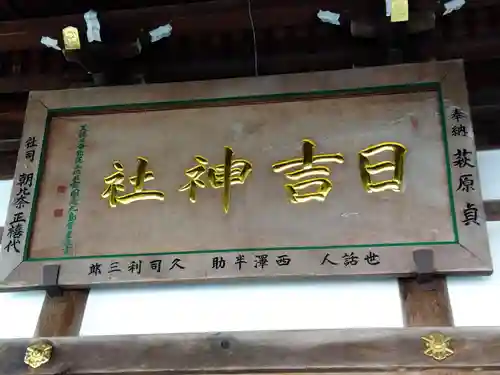 日吉神社
奉納 萩原 貞
世話人 西澤半助 久司利三郎
社司 朝比奈正禧代